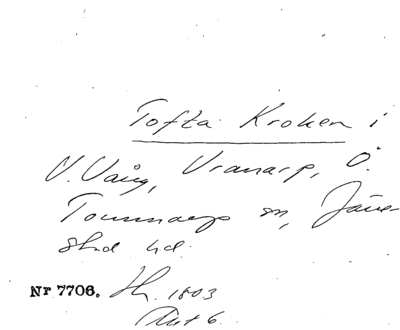 Tofta Kroken i
V. Vång, Vranarp, Ö.
Tommarps sn, Järre-
stad hd.
Nr 7706. Sk. 1803
Akt 6.